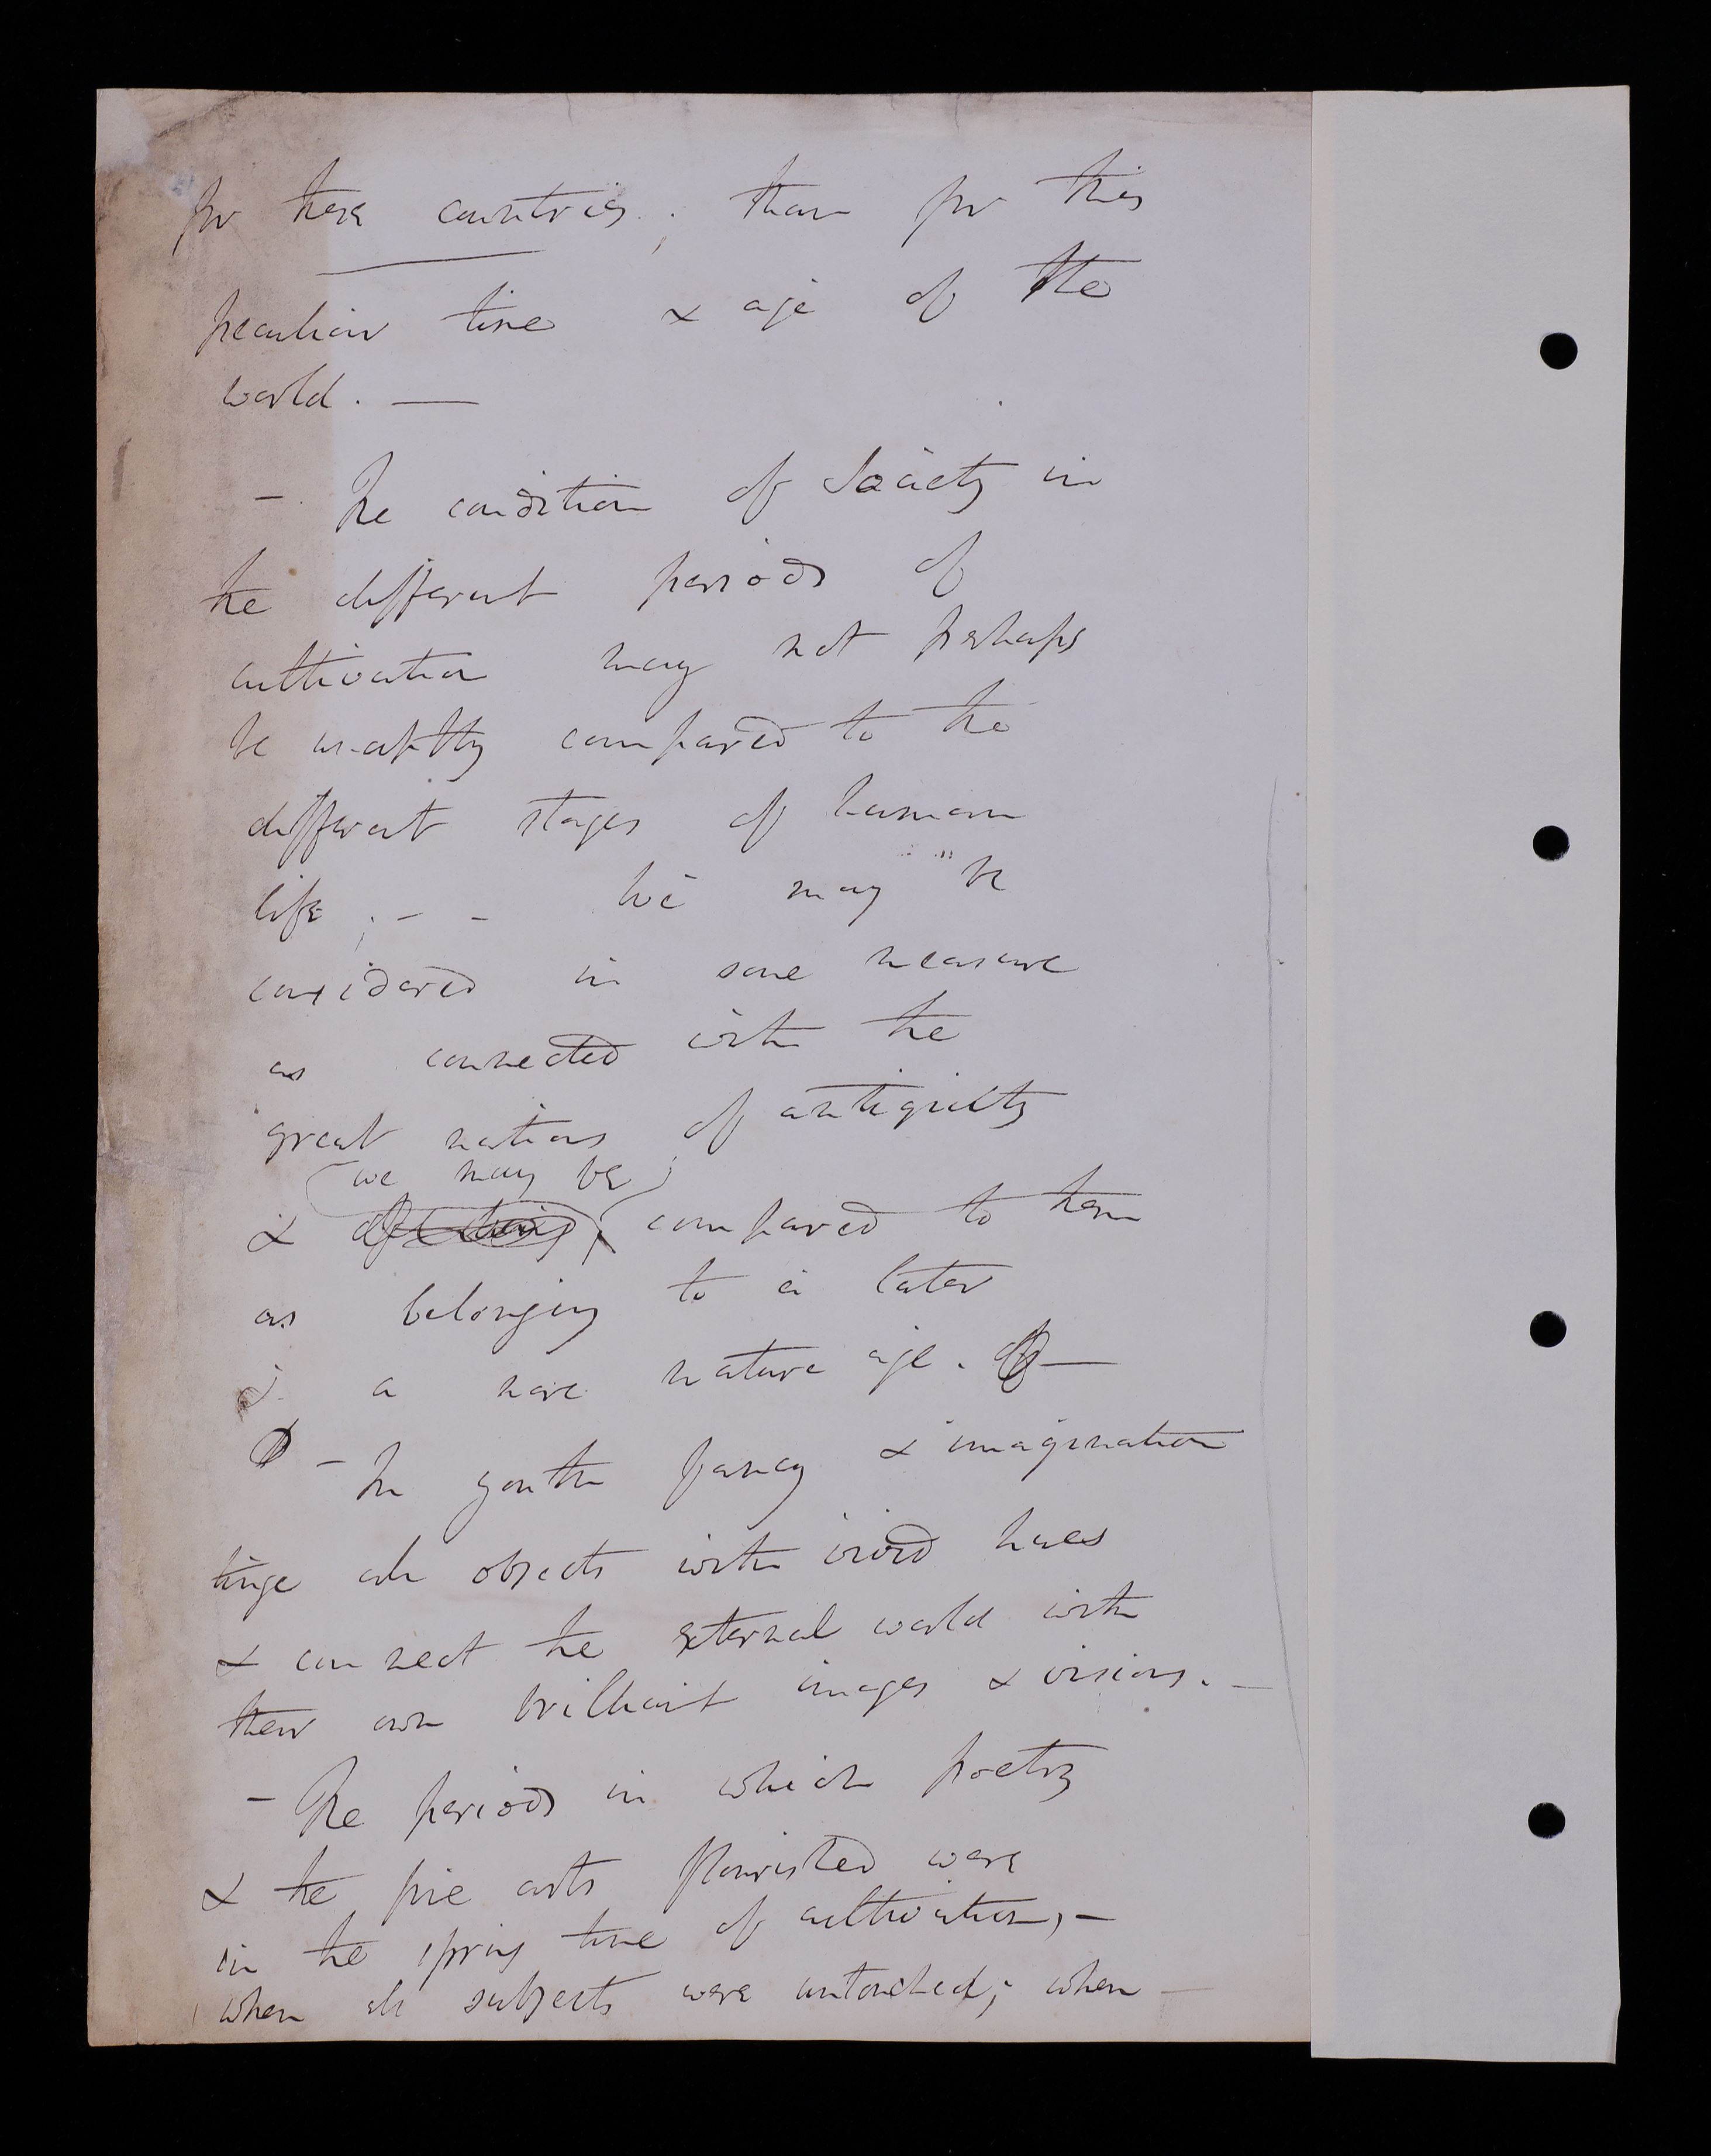 for these countries; than for this
peculiar time & age of the
world. —
— The condition of Society in
the different periods of
cultivation may not perhaps
be unaptly compared to the
different stages of human
life; — — We may be
considered in some measure
as connected with the
great nations of antiquity
we may be
& compared to them
as belonging to a later
& a more mature age. —
— In youth fancy & imagination
tinge all objects with vivid hues
& connect the external world with
their own brilliant images & visions. —
— The periods in which poetry
& the fine arts flourished were
in the spring time of cultivation, —
when all subjects were untouched; when —